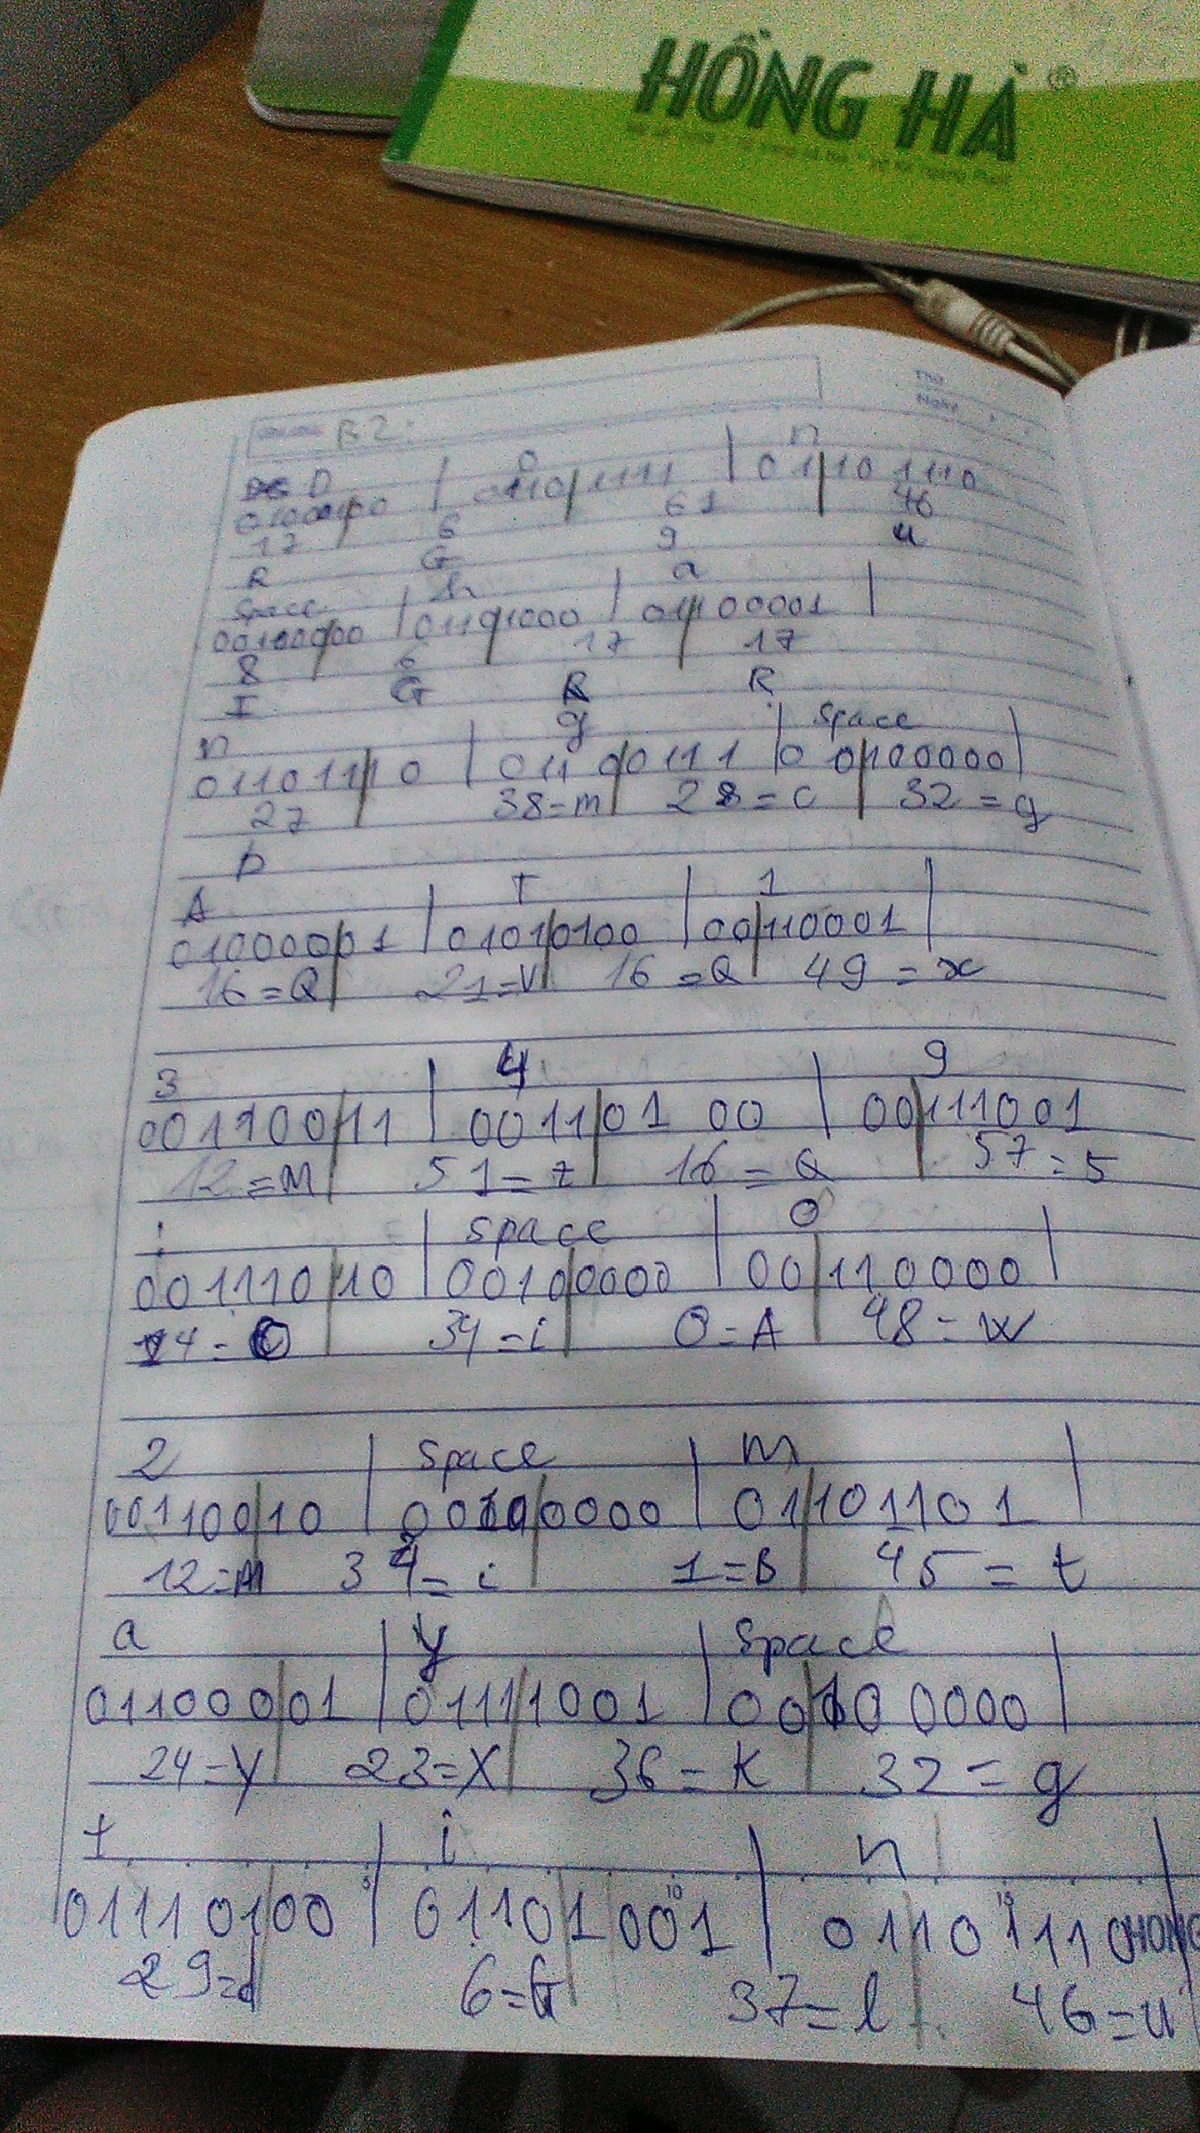 HỒNG HÀ ®
Thứ
Ngày
B2:
D | o | n
01000100 | 01101111 | 01101110
17 6 61 46
R G 9 u
Space | h | a
00100000 | 01101000 | 01100001
8 6 17 17
I G R R
n | g | Space
01101110 | 01100111 | 00100000
27 38=m 28=c 32=g
b
A | T | 1
01000001 | 01010100 | 00110001
16=Q 21=V 16=Q 49=x
3 | 4 | 9
00110011 | 00110100 | 00111001
12=M 51=z 16=Q 57=5
: | space | 0
00111010 | 00100000 | 00110000
14=O 34=i 0=A 48=w
2 | space | m
00110010 | 00100000 | 01101101
12=M 34=i 1=B 45=t
a | y | Space
01100001 | 01111001 | 00100000
24=Y 23=X 36=k 32=g
t | i | n
5 10 15
01110100 | 01101001 | 01101110 HONG
29=d 6=G 37=l 46=u